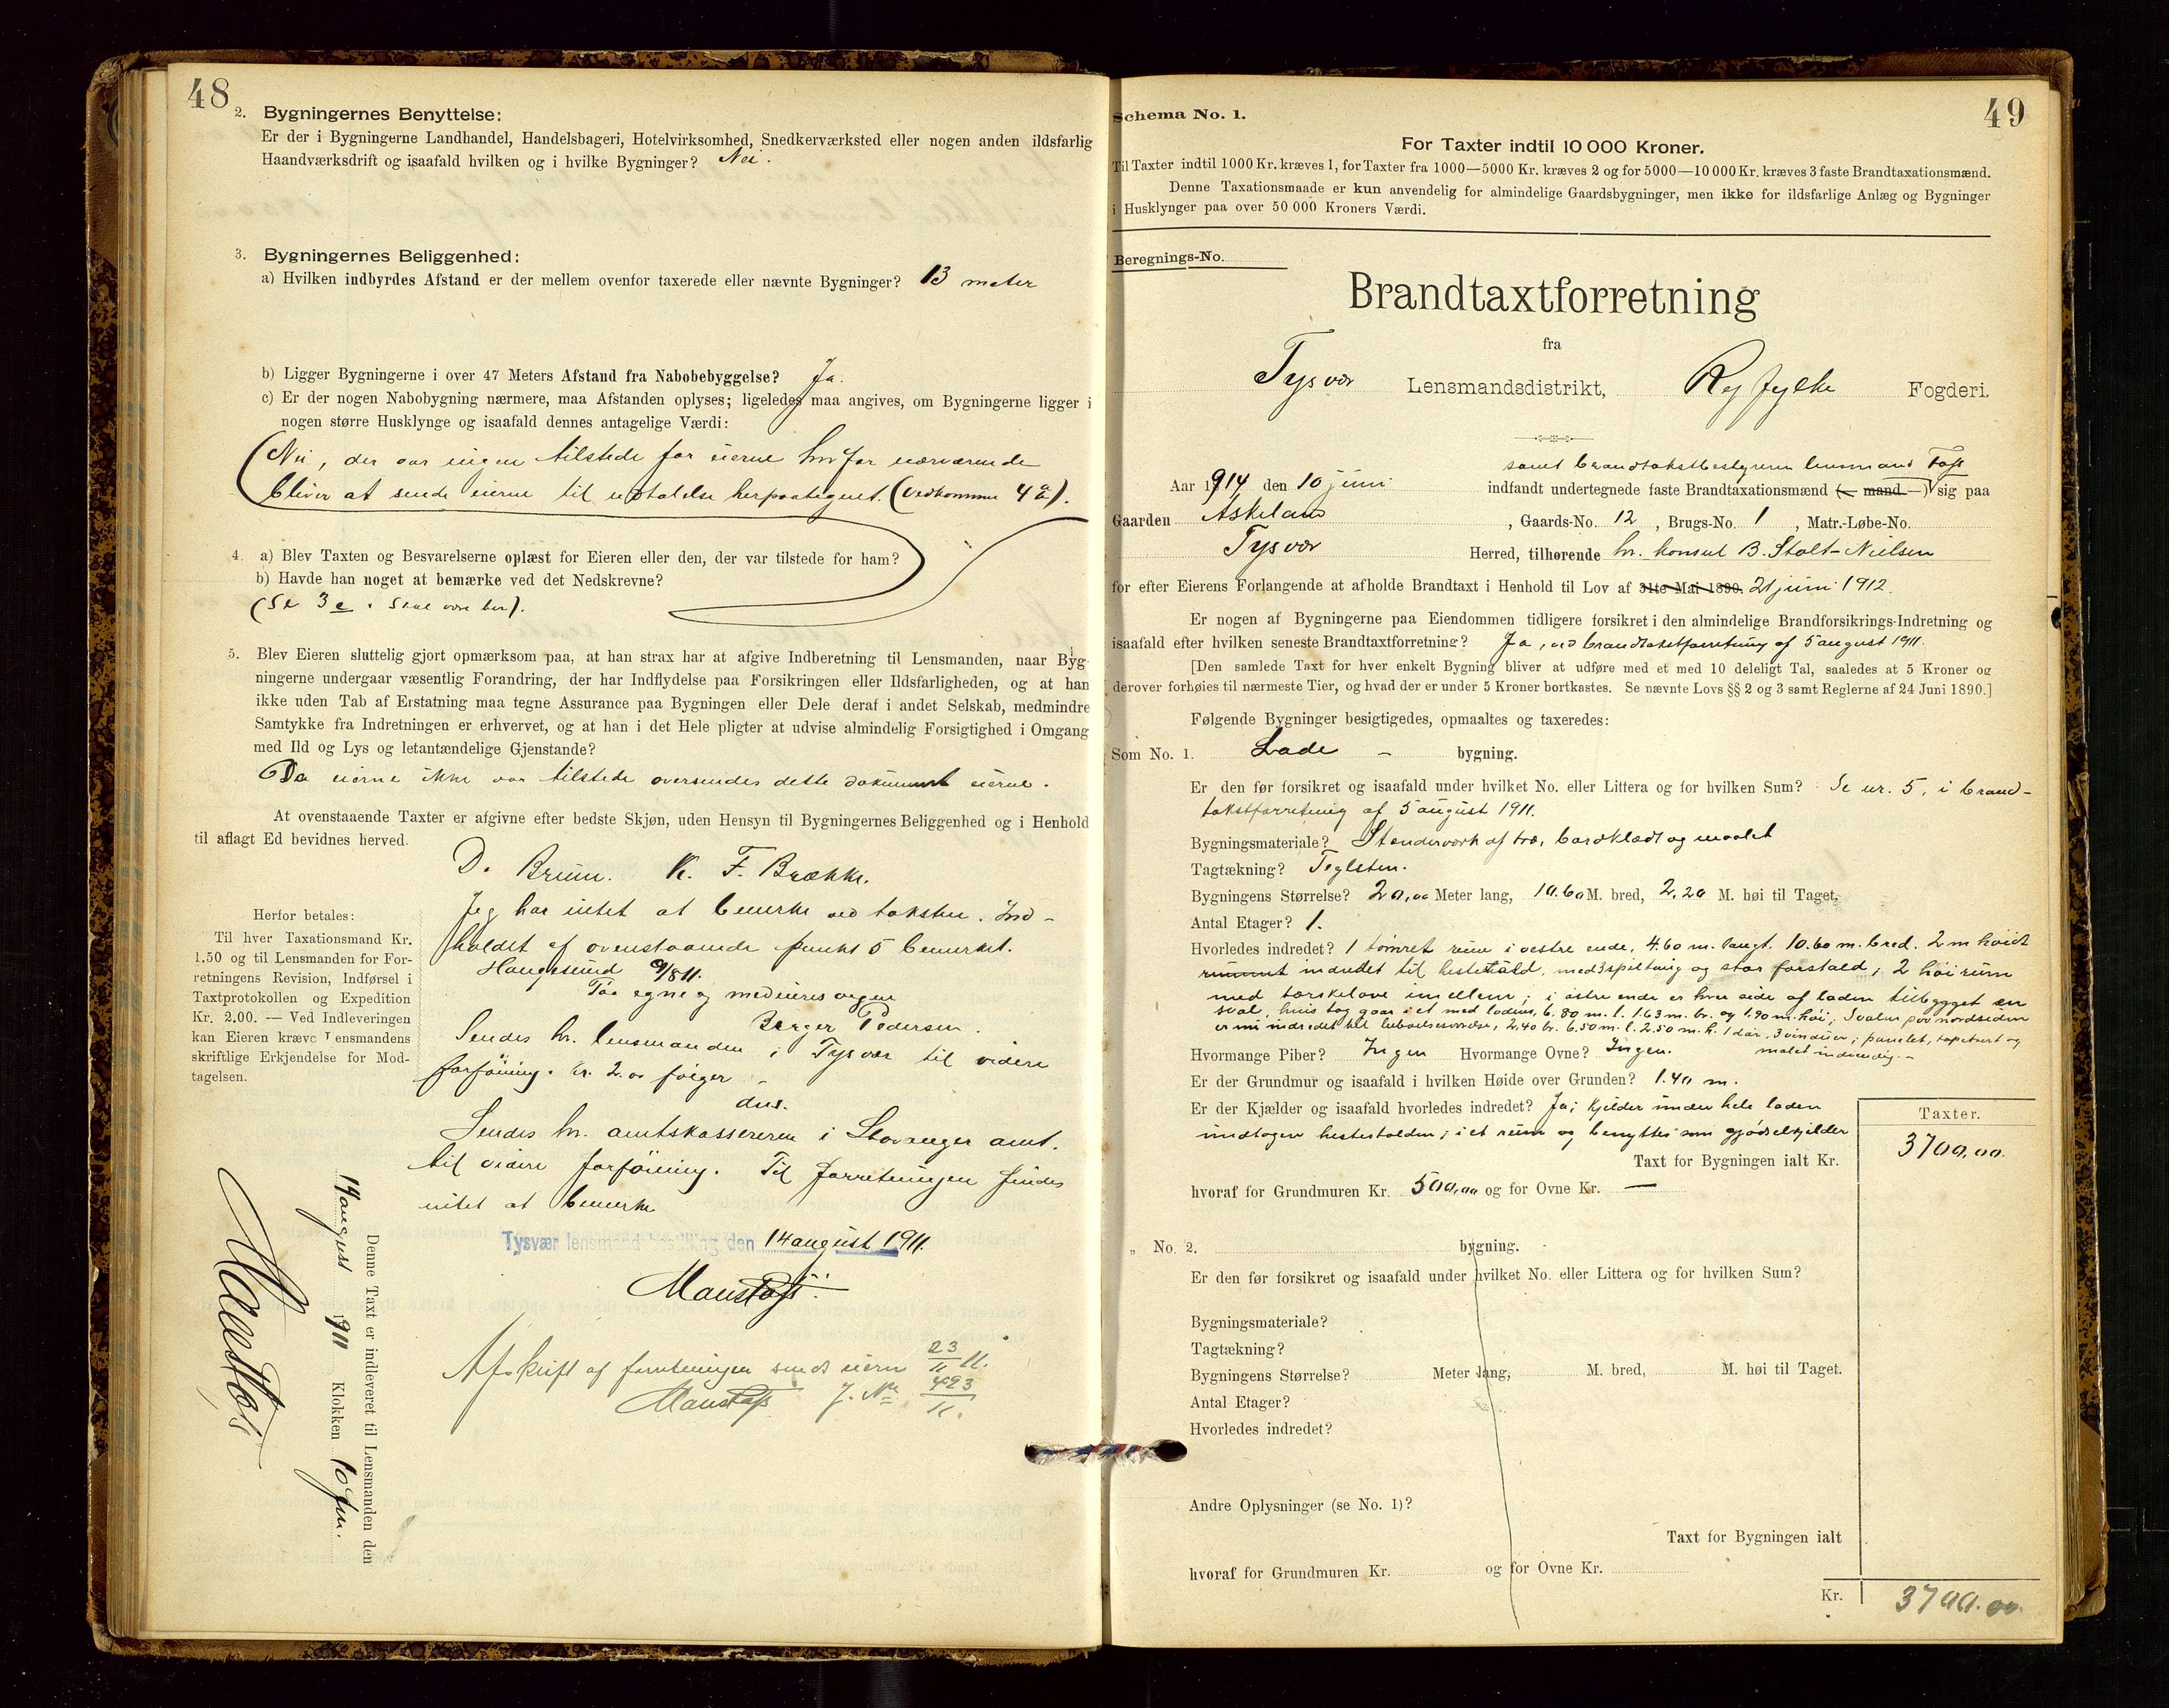 48
2. Bygningernes Benyttelse:
Er der i Bygningerne Landhandel, Handelsbageri, Hotelvirksomhed, Snedkerværksted eller nogen anden ildsfarlig
Haandværksdrift og isaafald hvilken og i hvilke Bygninger? Nei.
3. Bygningernes Beliggenhed:
a) Hvilken indbyrdes Afstand er der mellem ovenfor taxerede eller nævnte Bygninger? 13 meter
b) Ligger Bygningerne i over 47 Meters Afstand fra Nabobebyggelse? Ja.
c) Er der nogen Nabobygning nærmere, maa Afstanden oplyses; ligeledes maa angives, om Bygningerne ligger i
nogen større Husklynge og isaafald dennes antagelige Værdi:
(Nei, der var ingen tilstede for eierne hvorfor nærværende
bliver at sende eierne til udtalelse herpaategnet. (Vedkommer 4 a).
4. a) Blev Taxten og Besvarelserne oplæst for Eieren eller den, der var tilstede for ham?
b) Havde han noget at bemærke ved det Nedskrevne?
(Se 3 c. Skal være her).
5. Blev Eieren sluttelig gjort opmærksom paa, at han strax har at afgive Indberetning til Lensmanden, naar Byg-
ningerne undergaar væsentlig Forandring, der har Indflydelse paa Forsikringen eller Ildsfarligheden, og at han
ikke uden Tab af Erstatning maa tegne Assurance paa Bygningen eller Dele deraf i andet Selskab, medmindre
Samtykke fra Indretningen er erhvervet, og at han i det Hele pligter at udvise almindelig Forsigtighed i Omgang
med Ild og Lys og letantændelige Gjenstande?
Da eierne ikke var tilstede oversendes dette dokument eierne.
At ovenstaaende Taxter er afgivne efter bedste Skjøn, uden Hensyn til Bygningernes Beliggenhed og i Henhold
til aflagt Ed bevidnes herved.
D. Bruun. K. F. Brække.
Jeg har intet at bemerke ved taksten. Ind-
holdet af ovenstaaende punkt 5 bemerket.
Haugesund 9/8 11.
Paa egne og medeieres vegne
Berger Pedersen.
Sendes hr. lensmanden i Tysvær til videre
forføining. kr. 2.00 følger
dus.
Sendes hr. amtskassereren i Stavanger amt.
til videre forføining. Til forretningen findes
intet at bemerke
Tysvær lensmandsbestilling den 14 august 1911.
Afskrift af forretningen sendt eiern 23/11 11.
J. Nr. 493/11.
Herfor betales:
Til hver Taxationsmand Kr.
1.50 og til Lensmanden for For-
retningens Revision, Indførsel i
Taxtprotokollen og Expedition
Kr. 2.00. — Ved Indleveringen
kan Eieren kræve Lensmandens
skriftlige Erkjendelse for Mod-
tagelsen.
Denne Taxt er indleveret til Lensmanden den
14 august 1911 Klokken 10 fm.
49
Schema No. 1.
For Taxter indtil 10 000 Kroner.
Til Taxter indtil 1000 Kr. kræves 1, for Taxter fra 1000—5000 Kr. kræves 2 og for 5000—10 000 Kr. kræves 3 faste Brandtaxationsmænd.
Denne Taxationsmaade er kun anvendelig for almindelige Gaardsbygninger, men ikke for ildsfarlige Anlæg og Bygninger
i Husklynger paa over 50 000 Kroners Værdi.
Beregnings-No.
Brandtaxtforretning
fra
Tysvær Lensmandsdistrikt, Ryfylke Fogderi.
samt brandtakstbestyreren lensmand
Aar 1914 den 10 juni indfandt undertegnede faste Brandtaxationsmænd (— mand —) sig paa
Gaarden Askeland, Gaards-No. 12, Brugs-No. 1, Matr.-Løbe-No.
Tysvær Herred, tilhørende hr. konsul B. Stolt-Nielsen
for efter Eierens Forlangende at afholde Brandtaxt i Henhold til Lov af 31te Mai 1890. 21 juni 1912.
Er nogen af Bygningerne paa Eiendommen tidligere forsikret i den almindelige Brandforsikrings-Indretning og
isaafald efter hvilken seneste Brandtaxtforretning? Ja, ved brandtakstforretning af 5 august 1911.
[Den samlede Taxt for hver enkelt Bygning bliver at udføre med et med 10 deleligt Tal, saaledes at 5 Kroner og
derover forhøies til nærmeste Tier, og hvad der er under 5 Kroner bortkastes. Se nævnte Lovs §§ 2 og 3 samt Reglerne af 24 Juni 1890.]
Følgende Bygninger besigtigedes, opmaaltes og taxeredes:
Som No. 1. Lade - bygning.
Er den før forsikret og isaafald under hvilket No. eller Littera og for hvilken Sum? Se nr. 5, i brand-
takstforretning af 5 august 1911.
Bygningsmateriale? Stenderverk af træ, bordklædt og maalet
Tagtækning? Teglsten.
Bygningens Størrelse? 20,00 Meter lang, 10.60 M. bred, 2.20 M. høi til Taget.
Antal Etager? 1.
Hvorledes indredet? 1 tømret rum i vestre ende, 4.60 m. langt. 10.60 m. bred. 2 m høidt
rummet indredet til hestestald, med 3 spiltaug og stor forstald; 2 høirum
med tærskelove imellem; i østre ende er hver side af laden tilbygget en
sval, hvis tag gaar i et med ladens, 6.80 m. l. 1.63 m. br. og 1.90 m. høi; Svalen paa nordsiden
er nu indredet til beboelsesværelse, 2,40 br. 6.50 m. l. 2.50 m. h. 1 dør, 3 vinduer; panelet, tapetsert og
malet indvendig.-
Hvormange Piber? Ingen Hvormange Ovne? Ingen.
Er der Grundmur og isaafald i hvilken Høide over Grunden? 1.40 m.
Er der Kjælder og isaafald hvorledes indredet? Ja; kjelder under hele laden
undtagen hestestalden; i et rum og benyttes som gjødselkjelder
Taxter.
Taxt for Bygningen ialt Kr. 3700,00.
hvoraf for Grundmuren Kr. 500,00 og for Ovne Kr. —
„ No. 2. bygning.
Er den før forsikret og isaafald under hvilket No. eller Littera og for hvilken Sum?
Bygningsmateriale?
Tagtækning?
Bygningens Størrelse? Meter lang, M. bred, M. høi til Taget.
Antal Etager?
Hvorledes indredet?
Andre Oplysninger (se No. 1)?
Taxt for Bygningen ialt
hvoraf for Grundmuren Kr. og for Ovne Kr.
Kr. 3700.00.